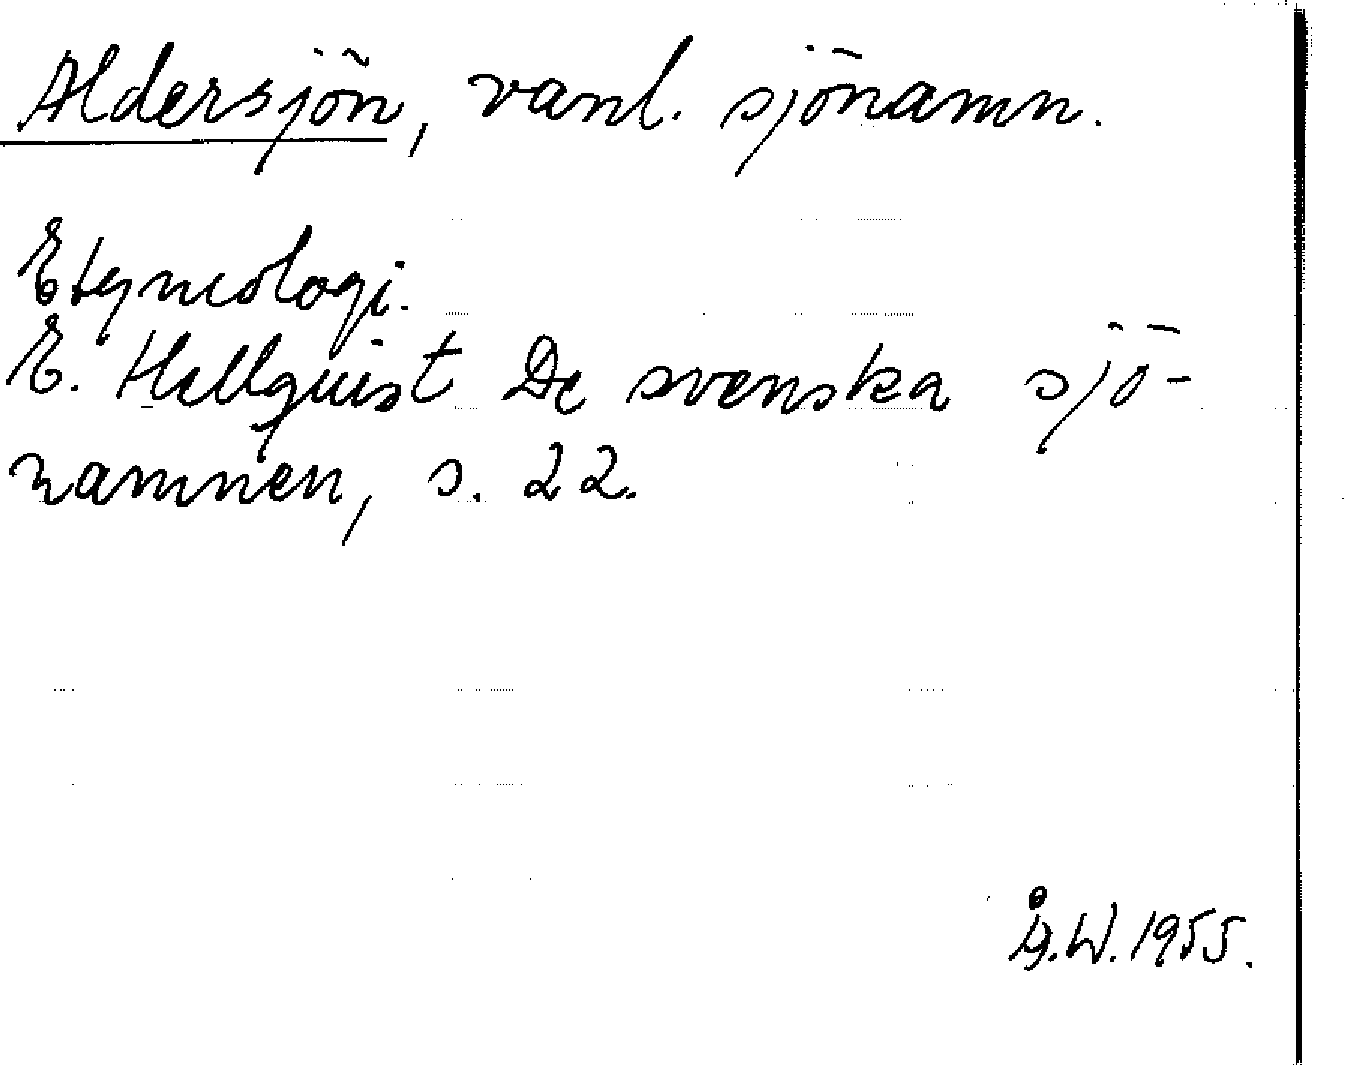 Aldersjön, vanl. sjönamn.
Etymologi.
E. Hellquist De svenska sjö-
namnen, s. 22.
Å.W. 1955.